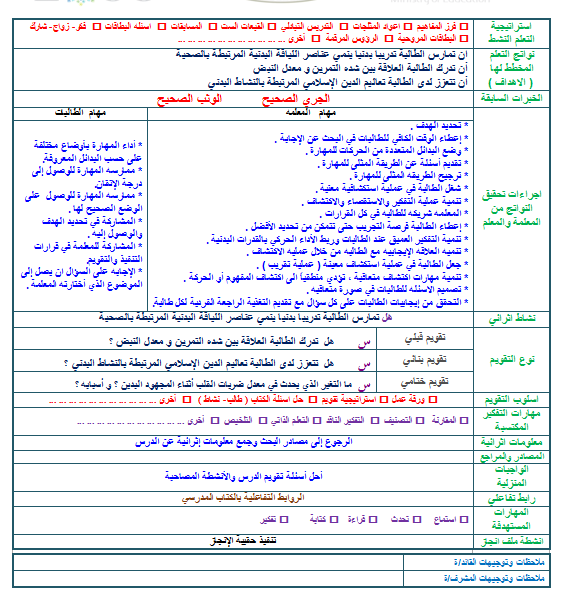 استراتيجية التعلم النشط
□ فرز المفاهيم □ اعواد المثلجات □ التدريس التبادلي □ القبعات الست □ المسابقات □ اسئله البطاقات □ فكر - زواج- شارك
□ البطاقات المروحية □ الرؤوس المرقمة □ أخرى
نواتج التعلم المخطط لها ( الاهداف )
ان تمارس الطالبة تدريبا بدنيا ينمي عناصر اللياقة البدنية المرتبطة بالصحية
ان تدرك الطالبة العلاقة بين شده التمرين و معدل النبض
ان تتعزز لدى الطالبة تعاليم الدين الإسلامي المرتبطة بالنشاط البدني
الخبرات السابقة
الجري الصحيح الوثب الصحيح
اجراءات تحقيق النواتج من المعلمة والمعلم
مهام المعلمه
* تحديد الهدف .
* إعطاء الوقت الكافي للطالبات في البحث عن الإجابة .
* وضع البدائل المتعددة من الحركات للمهارة .
* تقديم أسئلة عن الطريقة المثلى للمهارة .
* ترجيح الطريقه المثلى للمهارة .
* شغل الطالبة في عملية استكشافية معنية .
* تنمية عملية التفكير والاستقصاء والاكتشاف .
* المعلمه شريكه للطالبه في كل القرارات .
* إعطاء الطالبة فرصة التجريب حتى تتمكن من تحديد الأفضل .
* تنمية التفكير العميق عند الطالبات وربط الأداء الحركي بالقدرات البدنية .
* تنميه العلاقه الإيجابيه مع الطالبه من خلال عمليه الاكتشاف .
* جعل الطالبة في عملية استكشاف معينة ( عملية تقريب ) .
* تنمية مهارات اكتشاف متعاقبة ، تؤدي منطقياً الى اكتشاف المفهوم أو الحركة .
* تصميم الاسئله للطالبات في صورة متعاقبه .
* التحقق من إيجابيات الطالبات على كل سؤال مع تقديم التغذية الراجعة الفردية لكل طالبة.
مهام الطالبات
* أداء المهارة بأوضاع مختلفة على حسب البدائل المعروفة.
* ممارسه المهارة للوصول إلى درجة الإتقان.
* ممارسه المهارة للوصول على الوضع الصحيح لها .
* المشاركة في تحديد الهدف والوصول إليه .
* المشاركة للمعلمة في قرارات التنفيذ والتقويم
* الإجابه على السؤال ان يصل إلى الموضوع الذي أختارته المعلمة .
نشاط اثرائي
هل تمارس الطالبة تدريبا بدنيا ينمي عناصر اللياقة البدنية المرتبطة بالصحية
نوع التقويم
تقويم قبلي
س هل تدرك الطالبة العلاقة بين شده التمرين و معدل النبض ؟
تقويم بنائي
س هل تتعزز لدى الطالبة تعاليم الدين الإسلامي المرتبطة بالنشاط البدني ؟
تقويم ختامي
س ما التغير الذي يحدث في معدل ضربات القلب أثناء المجهود البدين ؟ و أسبابه ؟
اسلوب التقويم
□ ورقة عمل □ استراتيجية تقويم □ حل اسئلة الكتاب ( طالب- نشاط ) □ أخرى
مهارات التفكير المكتسبة
□ المقارنة □ التصنيف □ التفكير الناقد □ التعلم الذاتي □ التلخيص □ أخرى
معلومات اثرائية
الرجوع إلى مصادر البحث وجمع معلومات إثرائية عن الدرس
المصادر والمراجع
الواجبات المنزلية
أحل أسئلة تقويم الدرس والأنشطة المصاحبة
رابط تفاعلي
الروابط التفاعلية بالكتاب المدرسي
المهارات المستهدفة
□ استماع □ تحدث □ قراءة □ كتابة □ تفكير
انشطة ملف انجز
تنفيذ حقيبة الإنجاز
ملاحظات وتوجيهات القائد/ة
ملاحظات وتوجيهات المشرف/ة